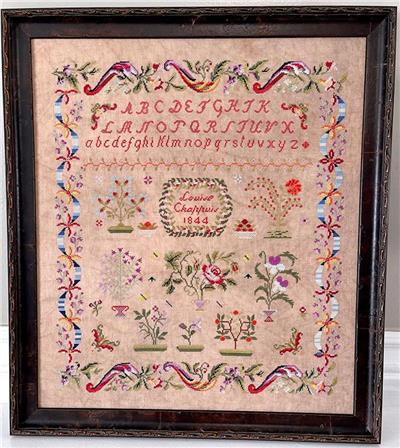 ABCDEFGHIK
LMNOPQRSTUVX
abcdefghiklmnopqrstuvxyz
Louise
Chappuis
1844